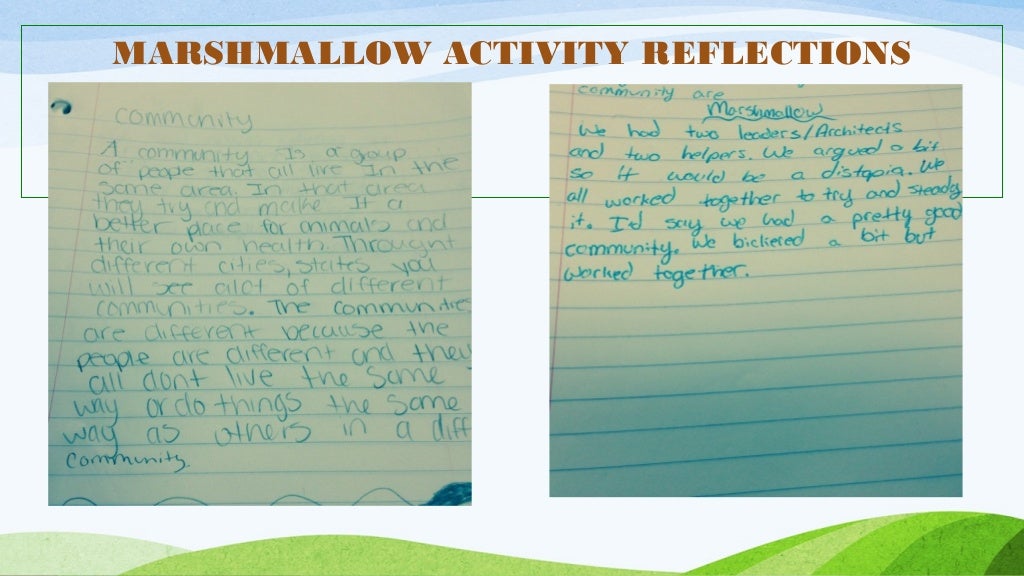 MARSHMALLOW ACTIVITY REFLECTIONS
community
A community Is a group
of people that all live In the
same area. In that area
they try and make It a
better place for animals and
their own health. Throught
different cities, states you
will see alot of different
communities. The communities
are different because the
people are different and they
all dont live the same
way or do things the same
way as others in a diff
community.
community are
Marshmallow
We had two leaders/Architects
and two helpers. We argued a bit
so it would be a distopia. We
all worked together to try and steady
it. I'd say we had a pretty good
community. We bickered a bit but
worked together.